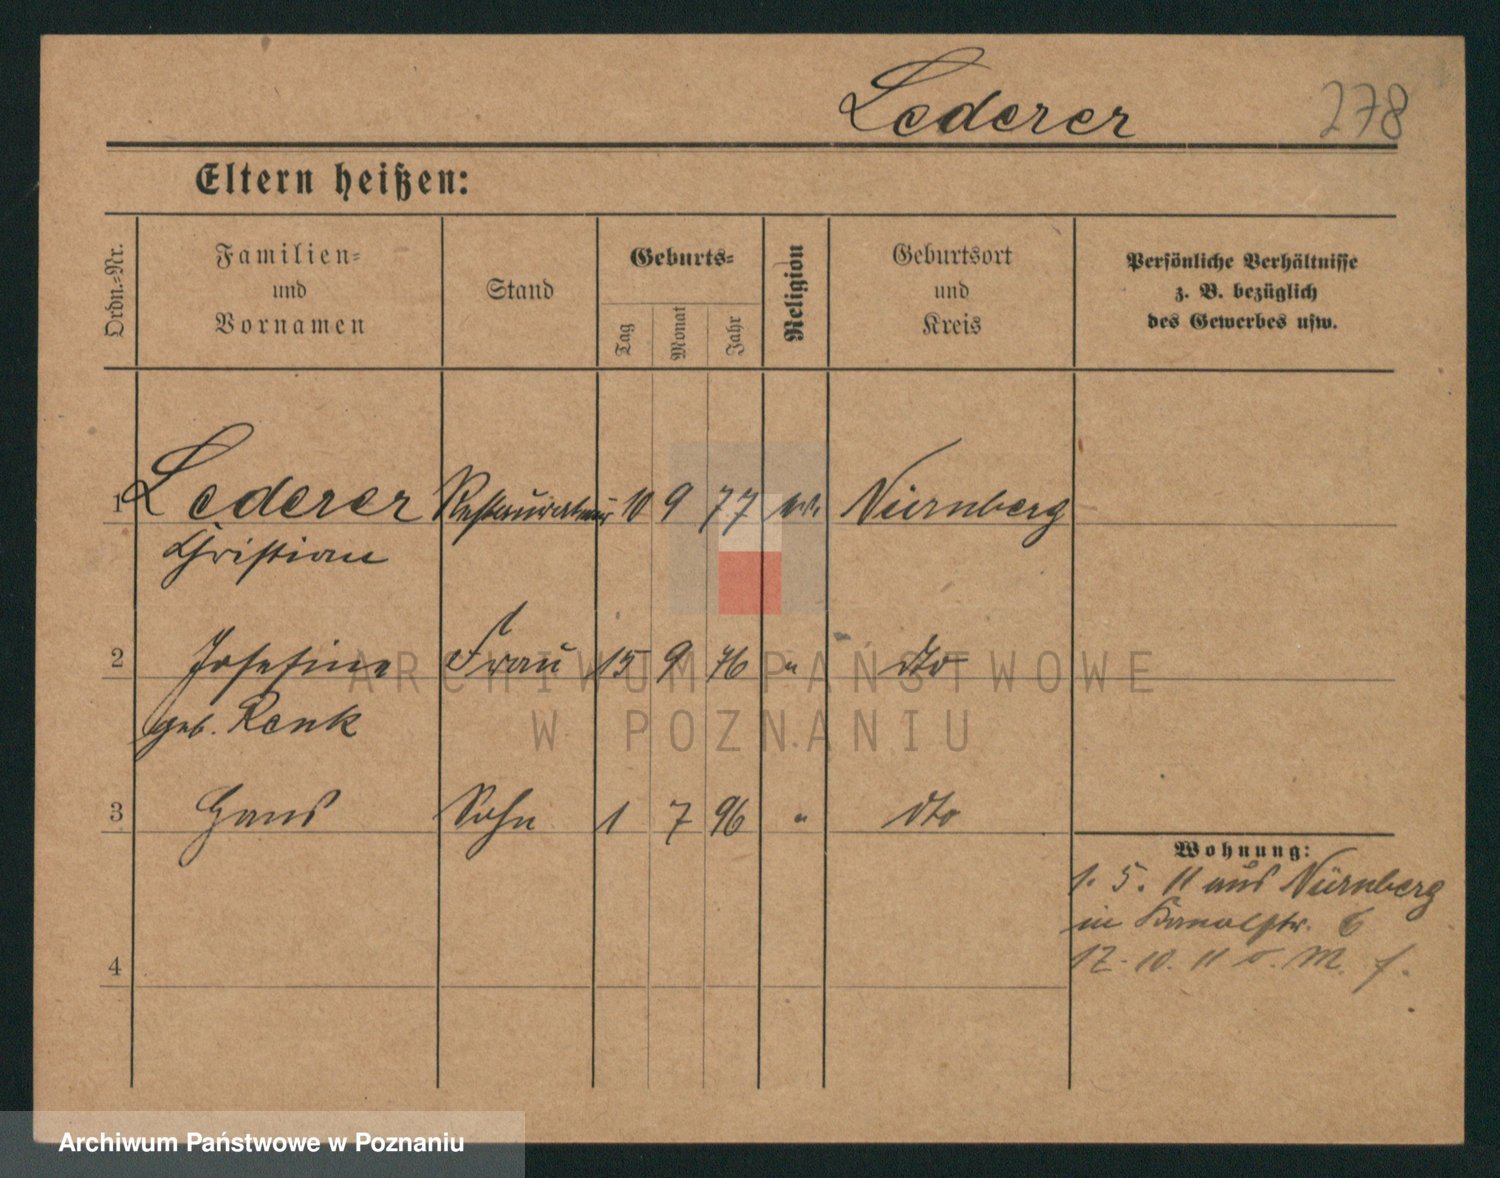 Lederer 278
Eltern heißen:
Ordn.-Nr.
Familien-
und
Vornamen
Stand
Geburts-
Tag
Monat
Jahr
Religion
Geburtsort
und
Kreis
Persönliche Verhältnisse
z. B. bezüglich
des Gewerbes usw.
1 Lederer Restaurateur 10 9 77 ev. Nürnberg
Christian
2 Josefine Frau 15 9 76 " dto
geb. Renk
3 Hans Sohn 1 7 96 " dto
Wohnung:
1. 5. 11 aus Nürnberg
in Kanalstr. 6
4
17. 10. 11 v. M.
ARCHIWUM PAŃSTWOWE
W POZNANIU
Archiwum Państwowe w Poznaniu